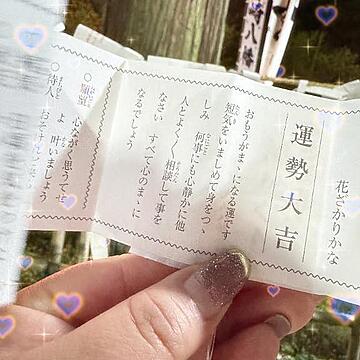 花ざかりかな
運勢大吉
おもうがまゝになる運です
短気をいましめて身をつゝ
しみ 何事にも心静かに他
人とよくよく相談して事を
なさい すべて心のまゝに
なるでしょう
○願望 心ながく思うてせ
よ 叶いましょう
○待人
八幡